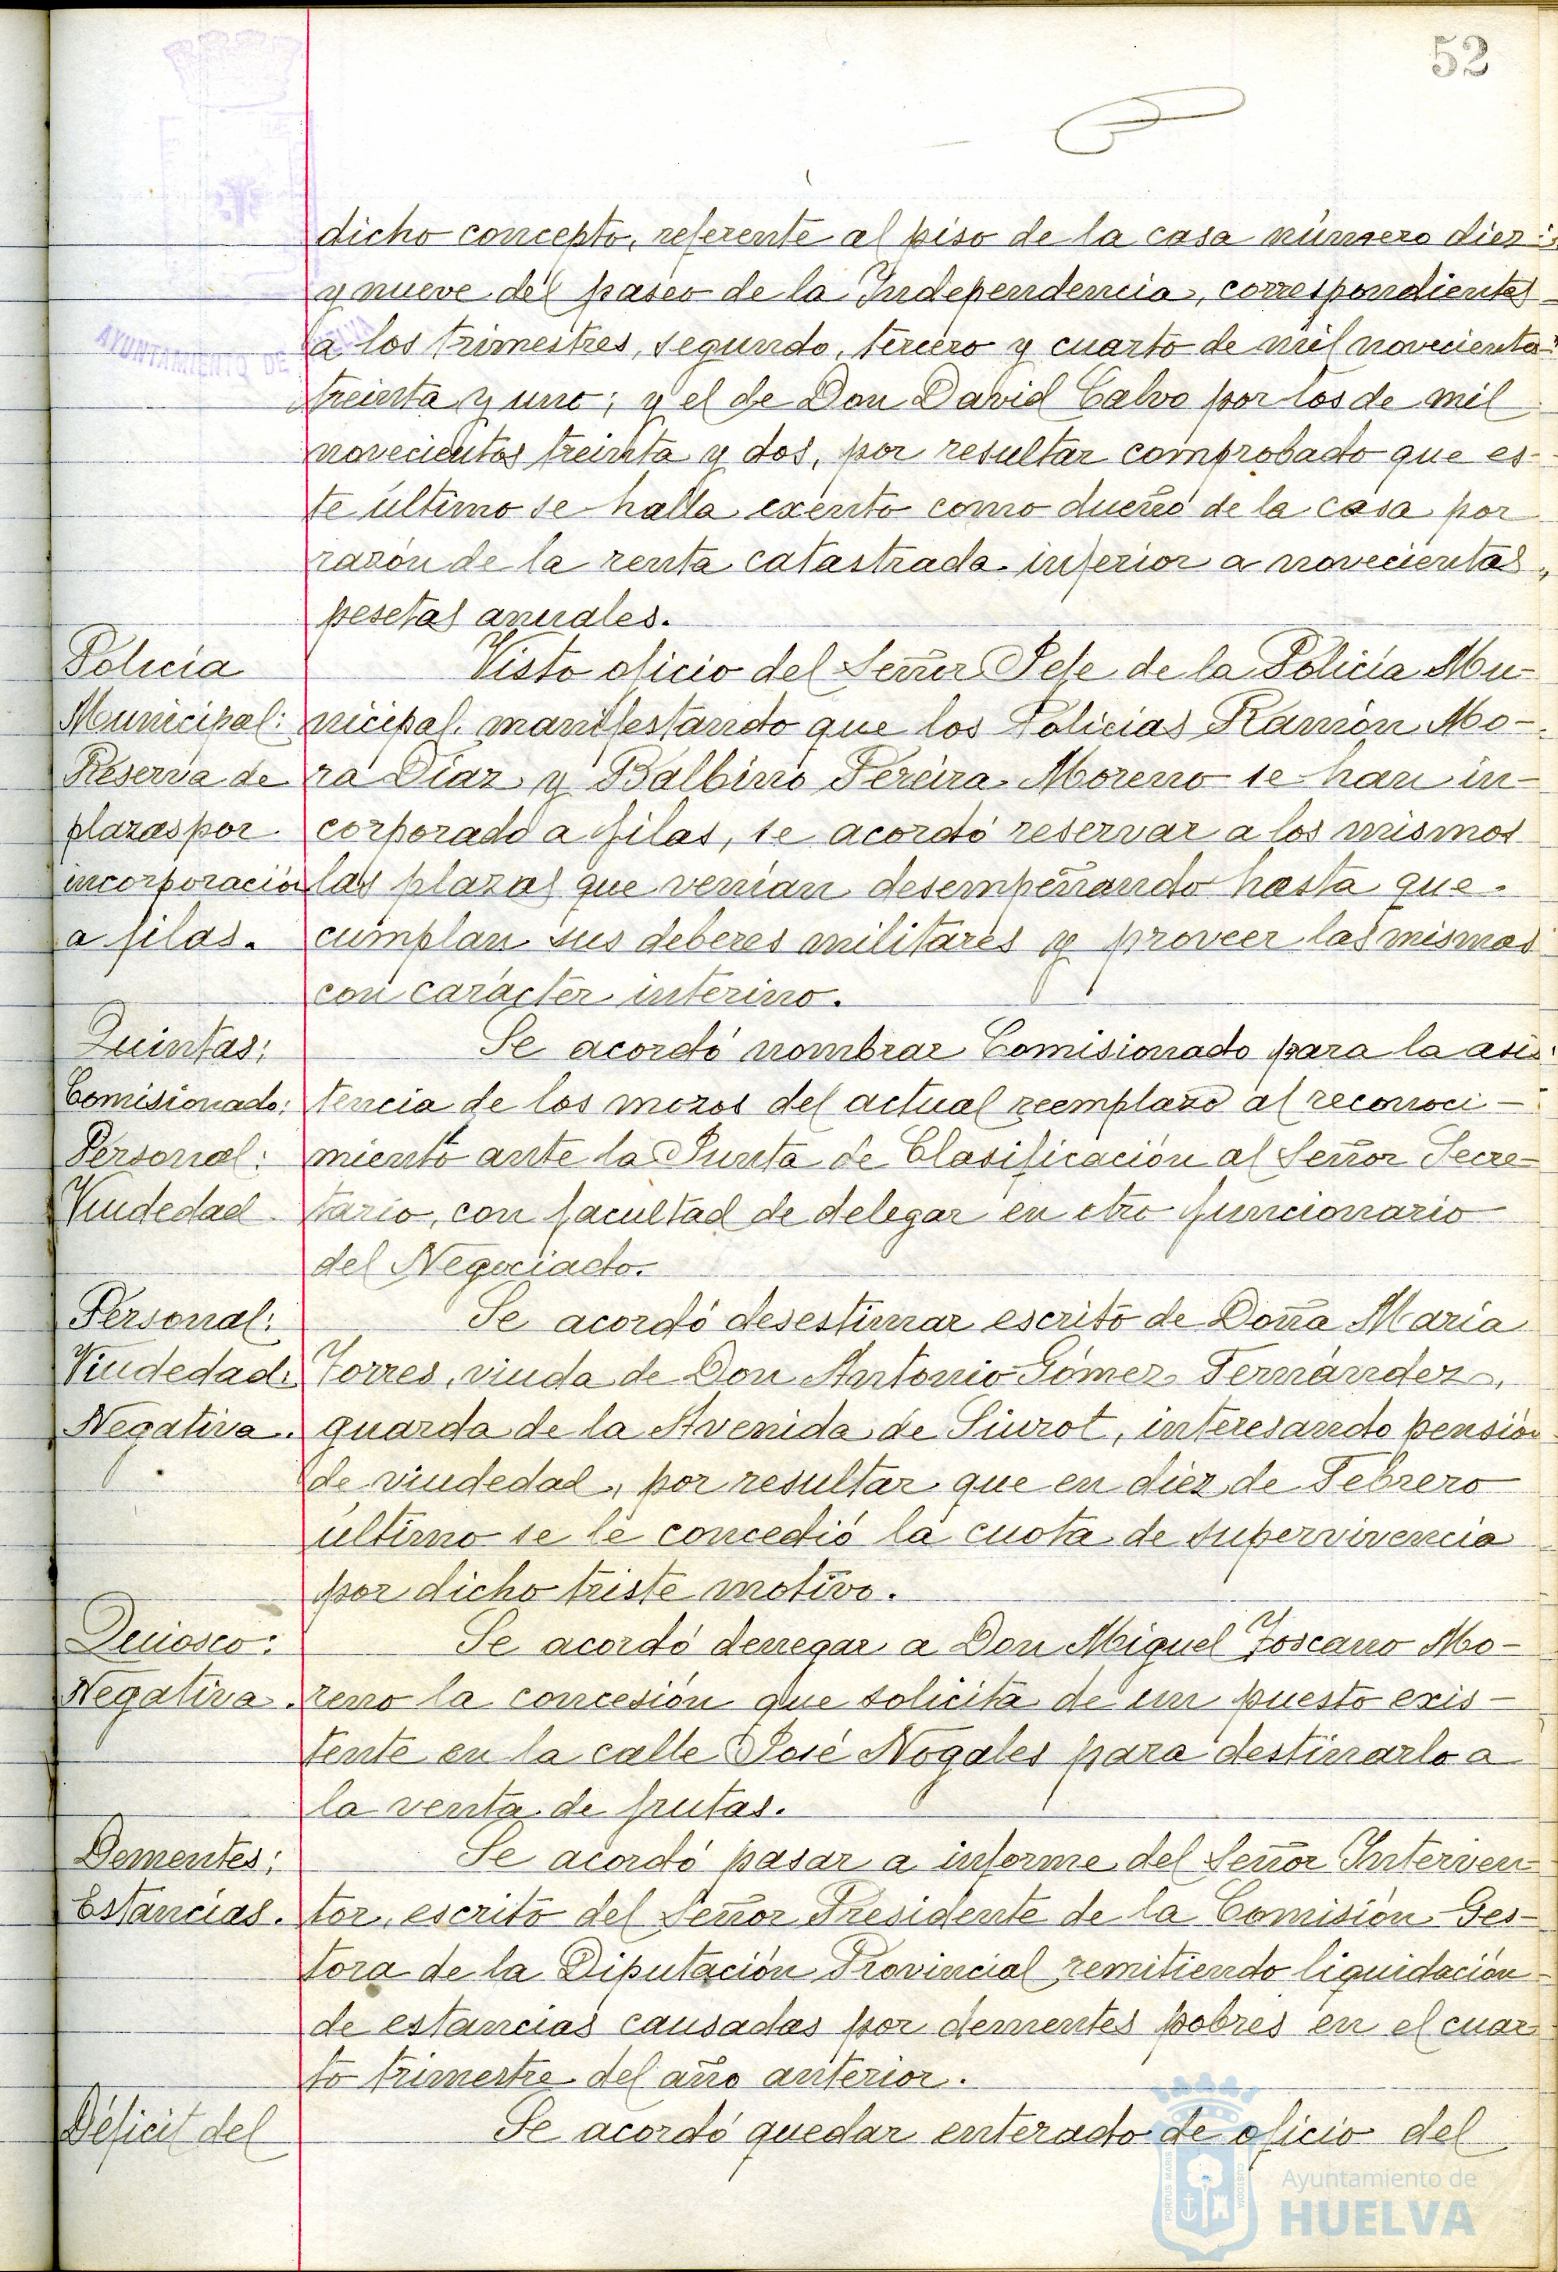 52
dicho concepto, referente al piso de la casa número diez
y nueve del paseo de la Independencia, correspondientes
a los trimestres, segundo, tercero y cuarto de mil novecientos
treinta y uno; y el de Don David Calvo por los de mil
novecientos treinta y dos, por resultar comprobado que es-
te último se halla exento como dueño de la casa por
razón de la renta catastrada inferior a novecientas
pesetas anuales.
Policía
Municipal:
Reserva de
plazas por
incorporación
a filas.
Visto oficio del Señor Jefe de la Policía Mu-
nicipal, manifestando que los Policias Ramón Mo-
ra Díaz y Balbino Pereira Moreno se han in-
corporado a filas, se acordó reservar a los mismos
las plazas que venían desempeñando hasta que
cumplan sus deberes militares y proveer las mismas
con carácter interino.
Quintas:
Comisionado:
Personal:
Viudedad
Se acordó nombrar Comisionado para la asis-
tencia de los mozos del actual reemplazo al reconoci-
miento ante la Junta de Clasificación al Señor Secre-
tario, con facultad de delegar en otro funcionario
del Negociado.
Personal:
Viudedad:
Negativa.
Se acordó desestimar escrito de Doña María
Torres, viuda de Don Antonio Gómez Fernández,
guarda de la Avenida de Siurot, interesando pensión
de viudedad, por resultar que en diez de Febrero
último se le concedió la cuota de supervivencia
por dicho triste motivo.
Quiosco:
Negativa.
Se acordó denegar a Don Miguel Toscano Mo-
reno la concesión que solicita de un puesto exis-
tente en la calle José Nogales para destinarlo a
la venta de frutas.
Dementes:
Estancias.
Se acordó pasar a informe del Señor Interven-
tor, escrito del Señor Presidente de la Comisión Ges-
tora de la Diputación Provincial remitiendo liquidación
de estancias causadas por dementes pobres en el cuar-
to trimestre del año anterior.
Déficit del
Se acordó quedar enterado de oficio del
AYUNTAMIENTO DE HUELVA
PORTUS MARIS
CUSTODIA
Ayuntamiento de
HUELVA